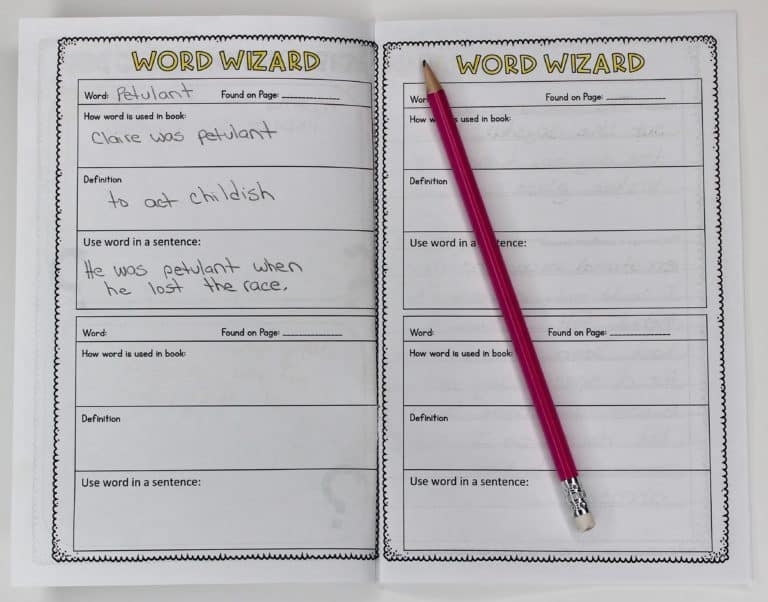 WORD WIZARD
Word: Petulant Found on Page: ______________
How word is used in book:
Claire was petulant
Definition
to act childish
Use word in a sentence:
He was petulant when
he lost the race.
Word: Found on Page: ______________
How word is used in book:
Definition
Use word in a sentence:
WORD WIZARD
Found on Page: ______________
How is used in book:
Definition
Use word in a
Word: Found on Page: ______________
How word is used in book:
Definition
Use word in a sentence: